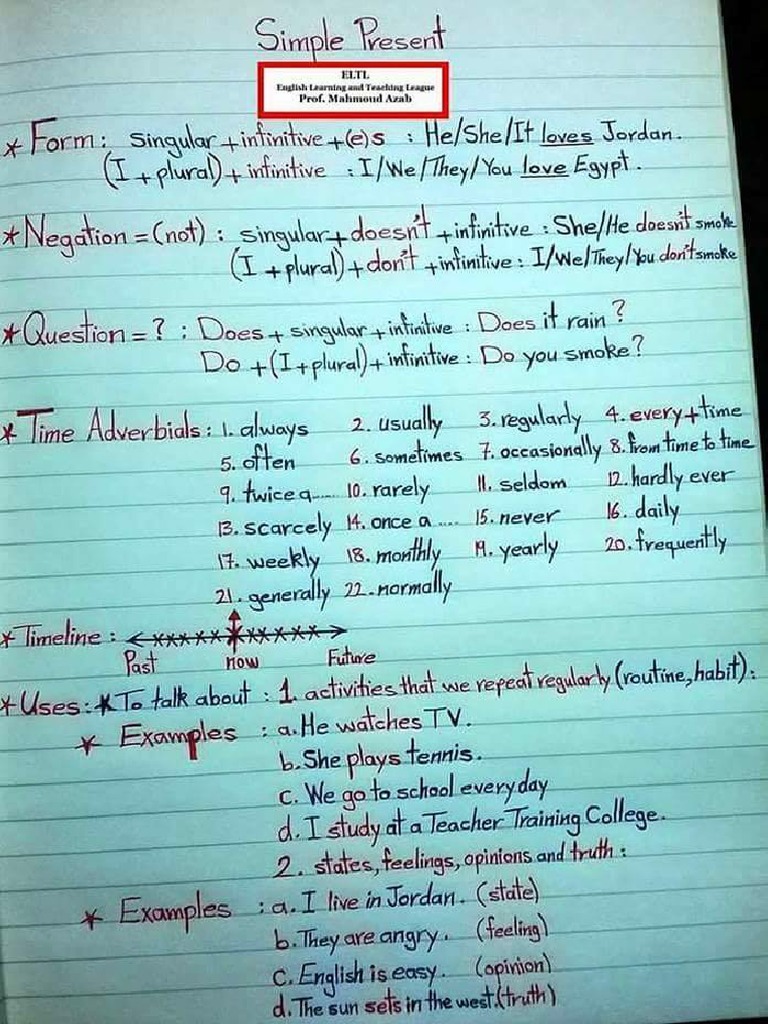 Simple Present
ELTL
English Learning and Teaching League
Prof. Mahmoud Azab
* Form: singular + infinitive + (e)s : He/She/It loves Jordan.
(I + plural) + infinitive : I/We/They/You love Egypt.
* Negation = (not) : singular + doesn't + infinitive : She/He doesn't smoke
(I + plural) + don't + infinitive : I/We/They/You don't smoke
* Question = ? : Does + singular + infinitive : Does it rain?
Do + (I + plural) + infinitive : Do you smoke?
* Time Adverbials : 1. always 2. usually 3. regularly 4. every + time
5. often 6. sometimes 7. occasionally 8. from time to time
9. twice a ..... 10. rarely 11. seldom 12. hardly ever
13. scarcely 14. once a .... 15. never 16. daily
17. weekly 18. monthly 19. yearly 20. frequently
21. generally 22. normally
* Timeline :
Past now Future
* Uses : * To talk about : 1. activities that we repeat regularly (routine, habit) :
* Examples : a. He watches TV.
b. She plays tennis.
c. We go to school everyday
d. I study at a Teacher Training College.
2. states, feelings, opinions and truth :
* Examples : a. I live in Jordan. (state)
b. They are angry. (feeling)
c. English is easy. (opinion)
d. The sun sets in the west. (truth)